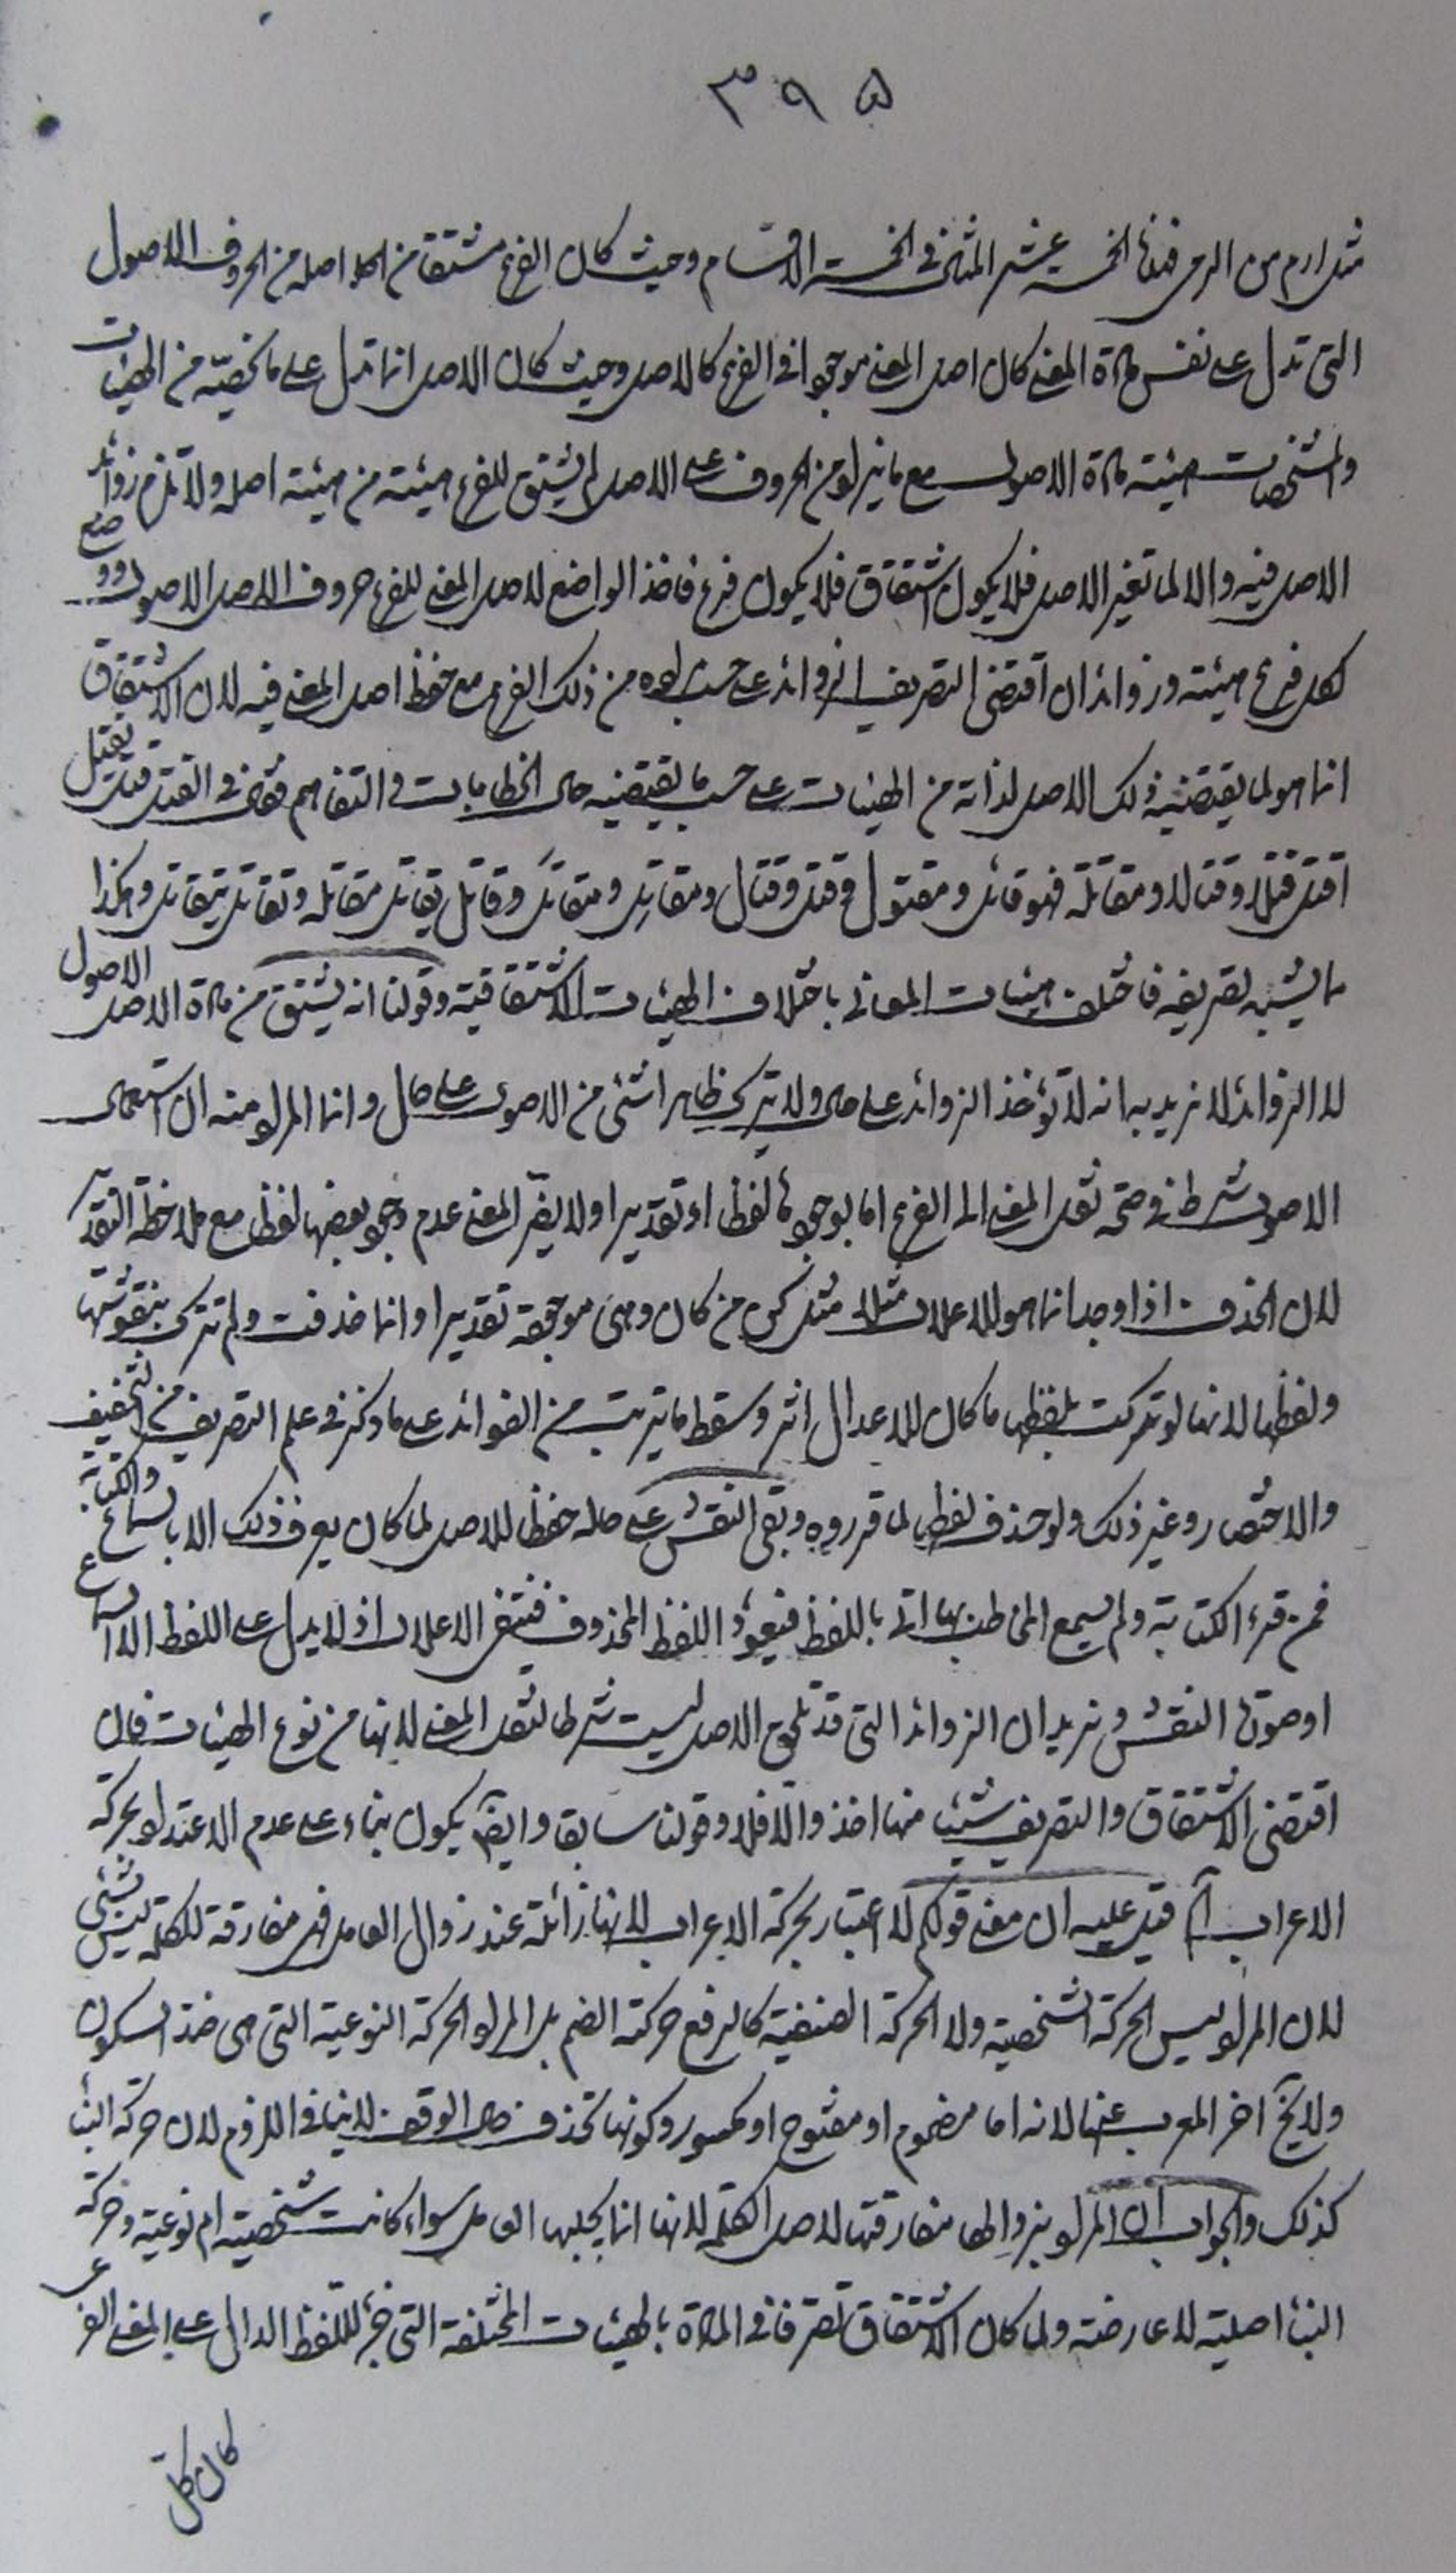 ٣٩٥
مثل ارم من الرمي فهذه الخمسة عشر المثنى في الخمسة الاقسام وحيث كان الفرع مشتقا من اصله من الحروف الاصول
التى تدل على نفس مادة المعنى كان اصل المعنى موجودا في الفرع كالاصل وحيث كان الاصل انما تدل على ما يخصّه من الهيئات
والمشخصات هيئته مادة الاصول مع ما يزاد من الحروف على الاصل لم يشتق للفرع هيئته من هيئة اصله ولا تلزم زوائد
الاصل فيه والا لما تغير الاصل فلا يكون اشتقاق فلا يكون فرع فاخذ الواضع لاصل المعنى للفرع حروف الاصل الاصول ووضع
لكل فرع هيئته وزوائد ان اقتضى التصريف الزوائد على حسب مراده من ذلك الفرع مع حفظ اصل المعنى فيه لان الاشتقاق
انما هو لما يقتضيه ذلك الاصل لذاته من الهيئات على حسب ما يقتضيه حال الخطابات في التفاهم فقال في القتل قتل يقتل
اقتل قتلا وقتالا ومقاتلة فهو قاتل ومقتول وقتل وقتال ومقاتِل ومقاتَل وقاتل يقاتل مقاتلة وتقاتل يتقاتل وهكذا
ما يشبه تصريفه فاختلفت هيئات المعانى باختلاف الهيئات الاشتقاقية وقولنا انه يشتق من مادة الاصل الاصول
لا الزوائد لا نريد به انه لا تؤخذ الزوائد على حال ولا يترك ظاهرا شئ من الاصول على حال وانما المراد منه ان استعمال
الاصول شرط في صحة نقل المعنى الى الفرع اما بوجودها لفظا او تقديرا ولا يضرّ المعنى عدم وجود بعضها لفظا مع ملاحظة التقدير
لان الحذف اذا وجد انما هو للاعلال مثلا مثل كن من كان وهى موجودة تقديرا وانما حذفت ولم تترك بنقوشها
ولفظها لانها لو تركت بلفظها ما كان للاعلال اثر وسقط ما يترتب من الفوائد على ما ذكر في علم التصريف من التخفيف
والاختصار وغير ذلك ولو حذف لفظها لما قرروه وبقى النقش على حاله حفظا للاصل لما كان يعرف ذلك الا بالسماع والكتابة
فمن قرء الكتابة ولم يسمع المخاطب بها اتى باللفظ فيعود اللفظ المحذوف فينتفى الاعلال اذ لا يدل على اللفظ الا السماع
او صورة النقش ونريد ان الزوائد التى قد تلحق الاصل ليست شرطا لنقل المعنى لانها من نوع الهيئات فان
اقتضى الاشتقاق والتصريف شيئا منها اخذ والّا فلا وقولنا سابقا وايضا يكون بناء على عدم الاعتداد بحركة
الاعراب آه قيل عليه ان معنى قولكم لا اعتبار بحركة الاعراب لانها زائلة عند زوال العامل فهى مفارقة للكلمة ليس بشئ
لان المراد ليس الحركة الشخصية ولا الحركة الصنفية كالرفع حركة الضم بل المراد الحركة النوعية التى هى ضد السكون
ولا يخ آخر المعرب عنها لانه اما مضموم او مفتوح او مكسور وكونها تحذف حال الوقف لا ينافى اللزوم لان حركة البناء
كذلك والجواب ان المراد بزوالها مفارقتها لاصل الكلمة لانها انما يجلبها العامل سواء كانت شخصية ام نوعية وحركة
البناء اصلية لا عارضة ولما كان الاشتقاق تصرفا في المادة بالهيئات المختلفة التى هى جزء للفظ الدال على المعنى الفرعى
كان كل